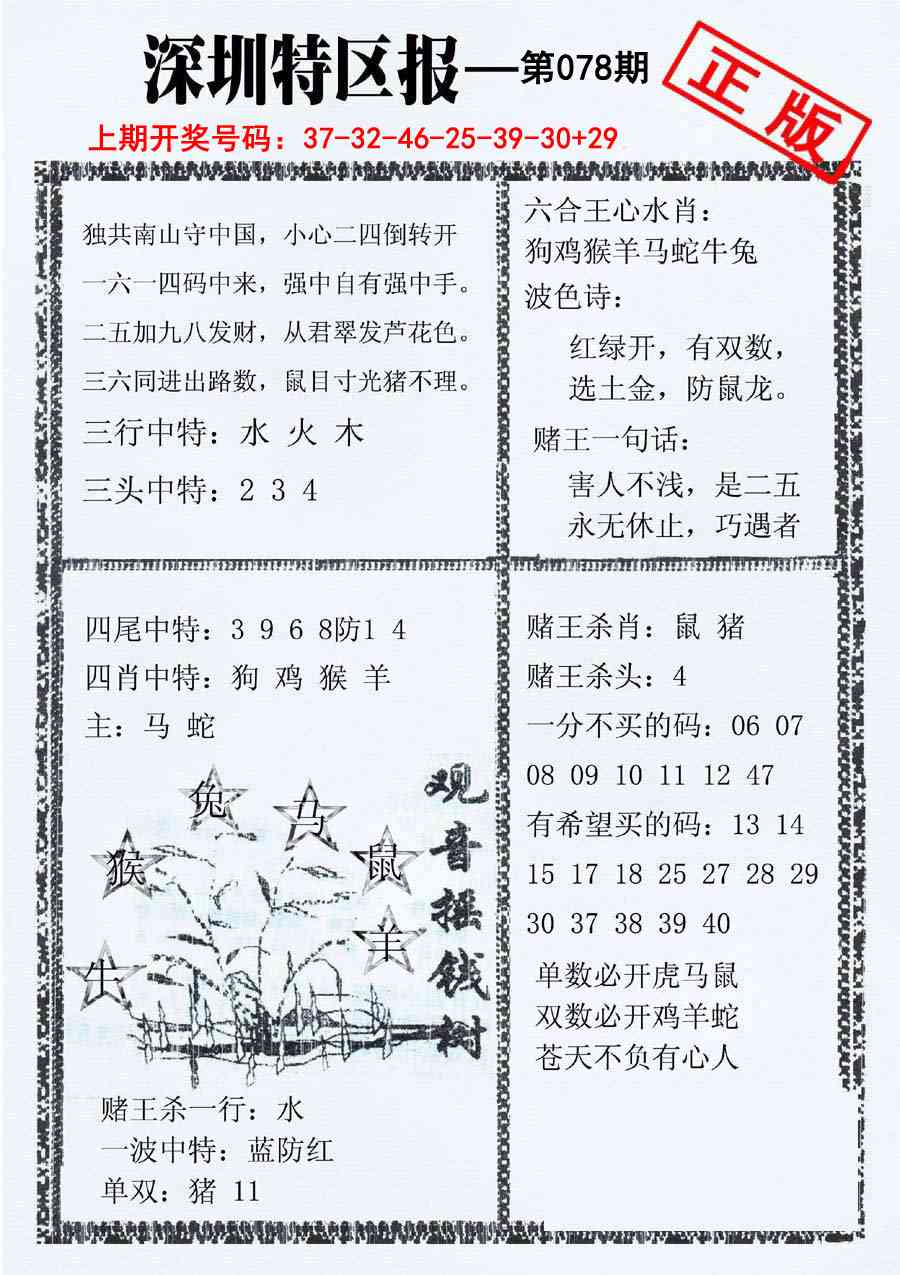 深圳特区报—第078期
正版
上期开奖号码：37-32-46-25-39-30+29
独共南山守中国，小心二四倒转开
一六一四码中来，强中自有强中手。
二五加九八发财，从君翠发芦花色。
三六同进出路数，鼠目寸光猪不理。
三行中特：水 火 木
三头中特：2 3 4
六合王心水肖：
狗鸡猴羊马蛇牛兔
波色诗：
红绿开，有双数，
选土金，防鼠龙。
赌王一句话：
害人不浅，是二五
永无休止，巧遇者
四尾中特：3 9 6 8防1 4
四肖中特：狗 鸡 猴 羊
主：马 蛇
兔
马
猴
鼠
羊
牛
观音摇钱树
赌王杀一行：水
一波中特：蓝防红
单双：猪 11
赌王杀肖：鼠 猪
赌王杀头：4
一分不买的码：06 07
08 09 10 11 12 47
有希望买的码：13 14
15 17 18 25 27 28 29
30 37 38 39 40
单数必开虎马鼠
双数必开鸡羊蛇
苍天不负有心人